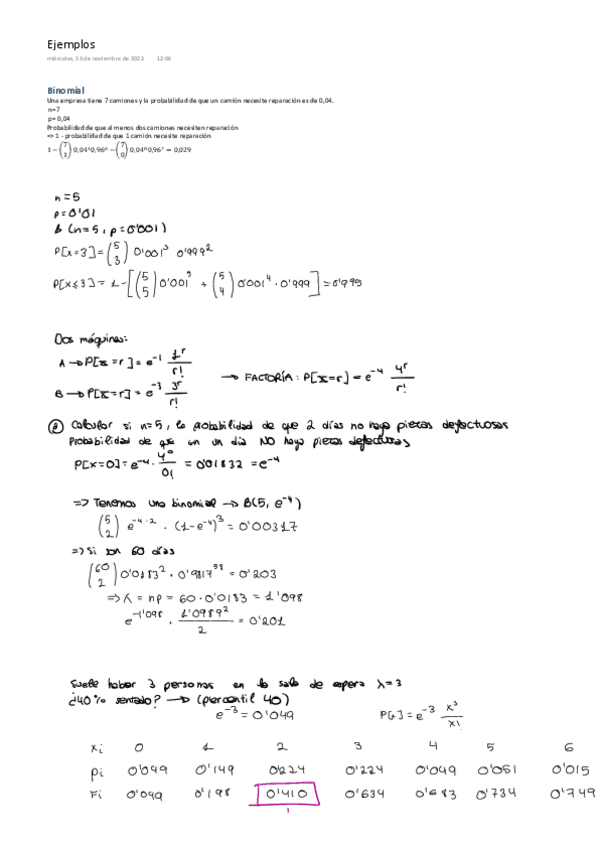 Ejemplos
miércoles, 23 de noviembre de 2022 12:06
Binomial
Una empresa tiene 7 camiones y la probabilidad de que un camión necesite reparación es de 0,04.
n=7
p= 0,04
Probabilidad de que al menos dos camiones necesiten reparación
=> 1 - probabilidad de que 1 camión necesite reparación
1 − (7 1) 0,04¹0,96⁶ − (7 0) 0,04⁰0,96⁷ = 0,029
n=5
p=0'01
b (n=5, p=0'001)
P[x=3] = (5 3) 0'001³ 0'999²
P[x≤3] = 1-[(5 5) 0'001⁵ + (5 4) 0'001⁴ · 0'999] = 0'995
Dos máquinas:
A → P[x=r] = e⁻¹ 1ʳ/r!
→ FACTORÍA: P[x=r] = e⁻⁴ 4ʳ/r!
B → P[x=r] = e⁻³ 3ʳ/r!
② Calcular si n=5, la probabilidad de que 2 días no haya piezas defectuosas
Probabilidad de que en un día NO haya piezas defectuosas
P[x=0] = e⁻⁴ · 4⁰/0! = 0'01832 = e⁻⁴
=> Tenemos una binomial → B(5, e⁻⁴)
(5 2) e⁻⁴·² · (1-e⁻⁴)³ = 0'00317
=> Si son 60 días
(60 2) 0'0183² · 0'9817⁵⁸ = 0'203
=> λ = np = 60 · 0'0183 = 1'098
e⁻¹'⁰⁹⁸ · 1'0989²/2 = 0'201
Suele haber 3 personas en la sala de espera λ=3
¿40% sentado? → (percentil 40)
e⁻³ = 0'049 P[x] = e⁻³ x³/x!
xi 0 1 2 3 4 5 6
pi 0'049 0'149 0'224 0'224 0'049 0'051 0'015
Fi 0'049 0'198 0'410 0'634 0'683 0'734 0'749